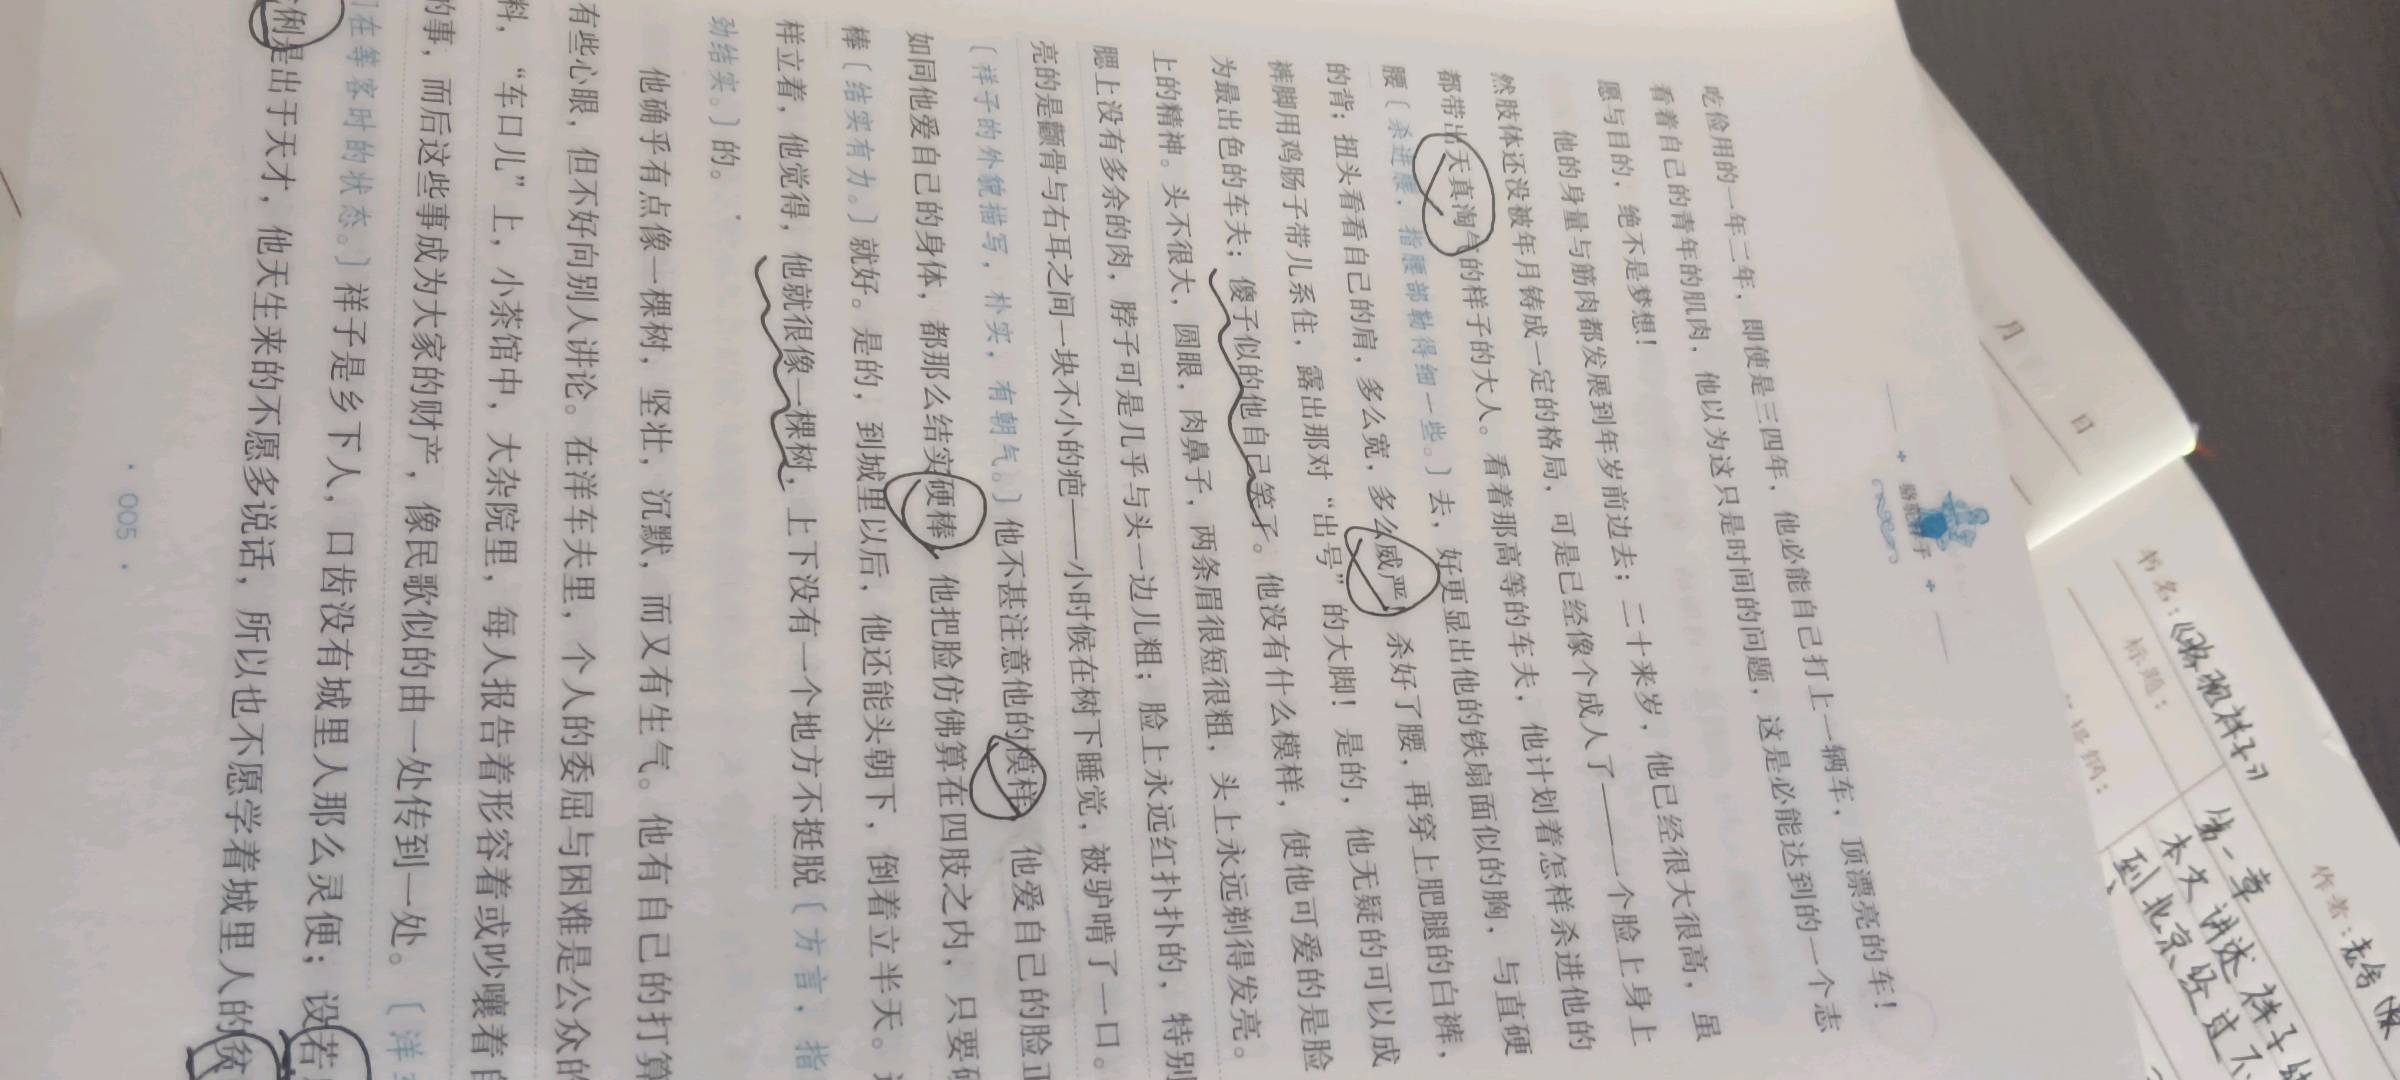 骆驼祥子
吃俭用的一年二年，即使是三四年，他必能自己打上一辆车，顶漂亮的车！
看着自己的青年的肌肉，他以为这只是时间的问题，这是必能达到的一个志
愿与目的，绝不是梦想！
他的身量与筋肉都发展到年岁前边去；二十来岁，他已经很大很高，虽
然肢体还没被年月铸成一定的格局，可是已经像个成人了——一个脸上身上
都带出天真淘气的样子的大人。看着那高等的车夫，他计划着怎样杀进他的
腰〔杀进腰，指腰部勒得细一些。〕去，好更显出他的铁扇面似的胸，与直硬
的背；扭头看看自己的肩，多么宽，多么威严！杀好了腰，再穿上肥腿的白裤，
裤脚用鸡肠子带儿系住，露出那对“出号”的大脚！是的，他无疑的可以成
为最出色的车夫；傻子似的他自己笑了。他没有什么模样，使他可爱的是脸
上的精神。头不很大，圆眼，肉鼻子，两条眉很短很粗，头上永远剃得发亮。
腮上没有多余的肉，脖子可是几乎与头一边儿粗；脸上永远红扑扑的，特别
亮的是颧骨与右耳之间一块不小的疤——小时候在树下睡觉，被驴啃了一口。
〔祥子的外貌描写，朴实，有朝气。〕他不甚注意他的模样，他爱自己的脸正
如同他爱自己的身体，都那么结实硬棒；他把脸仿佛算在四肢之内，只要硬
棒〔结实有力。〕就好。是的，到城里以后，他还能头朝下，倒着立半天。这
样立着，他觉得，他就很像一棵树，上下没有一个地方不挺脱〔方言，指
劲结实。〕的。
他确乎有点像一棵树，坚壮，沉默，而又有生气。他有自己的打算
有些心眼，但不好向别人讲论。在洋车夫里，个人的委屈与困难是公众的
料，“车口儿”上，小茶馆中，大杂院里，每人报告着形容着或吵嚷着自
的事，而后这些事成为大家的财产，像民歌似的由一处传到一处。〔洋
在等客时的状态。〕祥子是乡下人，口齿没有城里人那么灵便；设若
俐是出于天才，他天生来的不愿多说话，所以也不愿学着城里人的贫
· 005 ·
月 日
书名：《骆驼祥子》
作者：老舍
标题：
第一章
本文讲述祥子
到北京